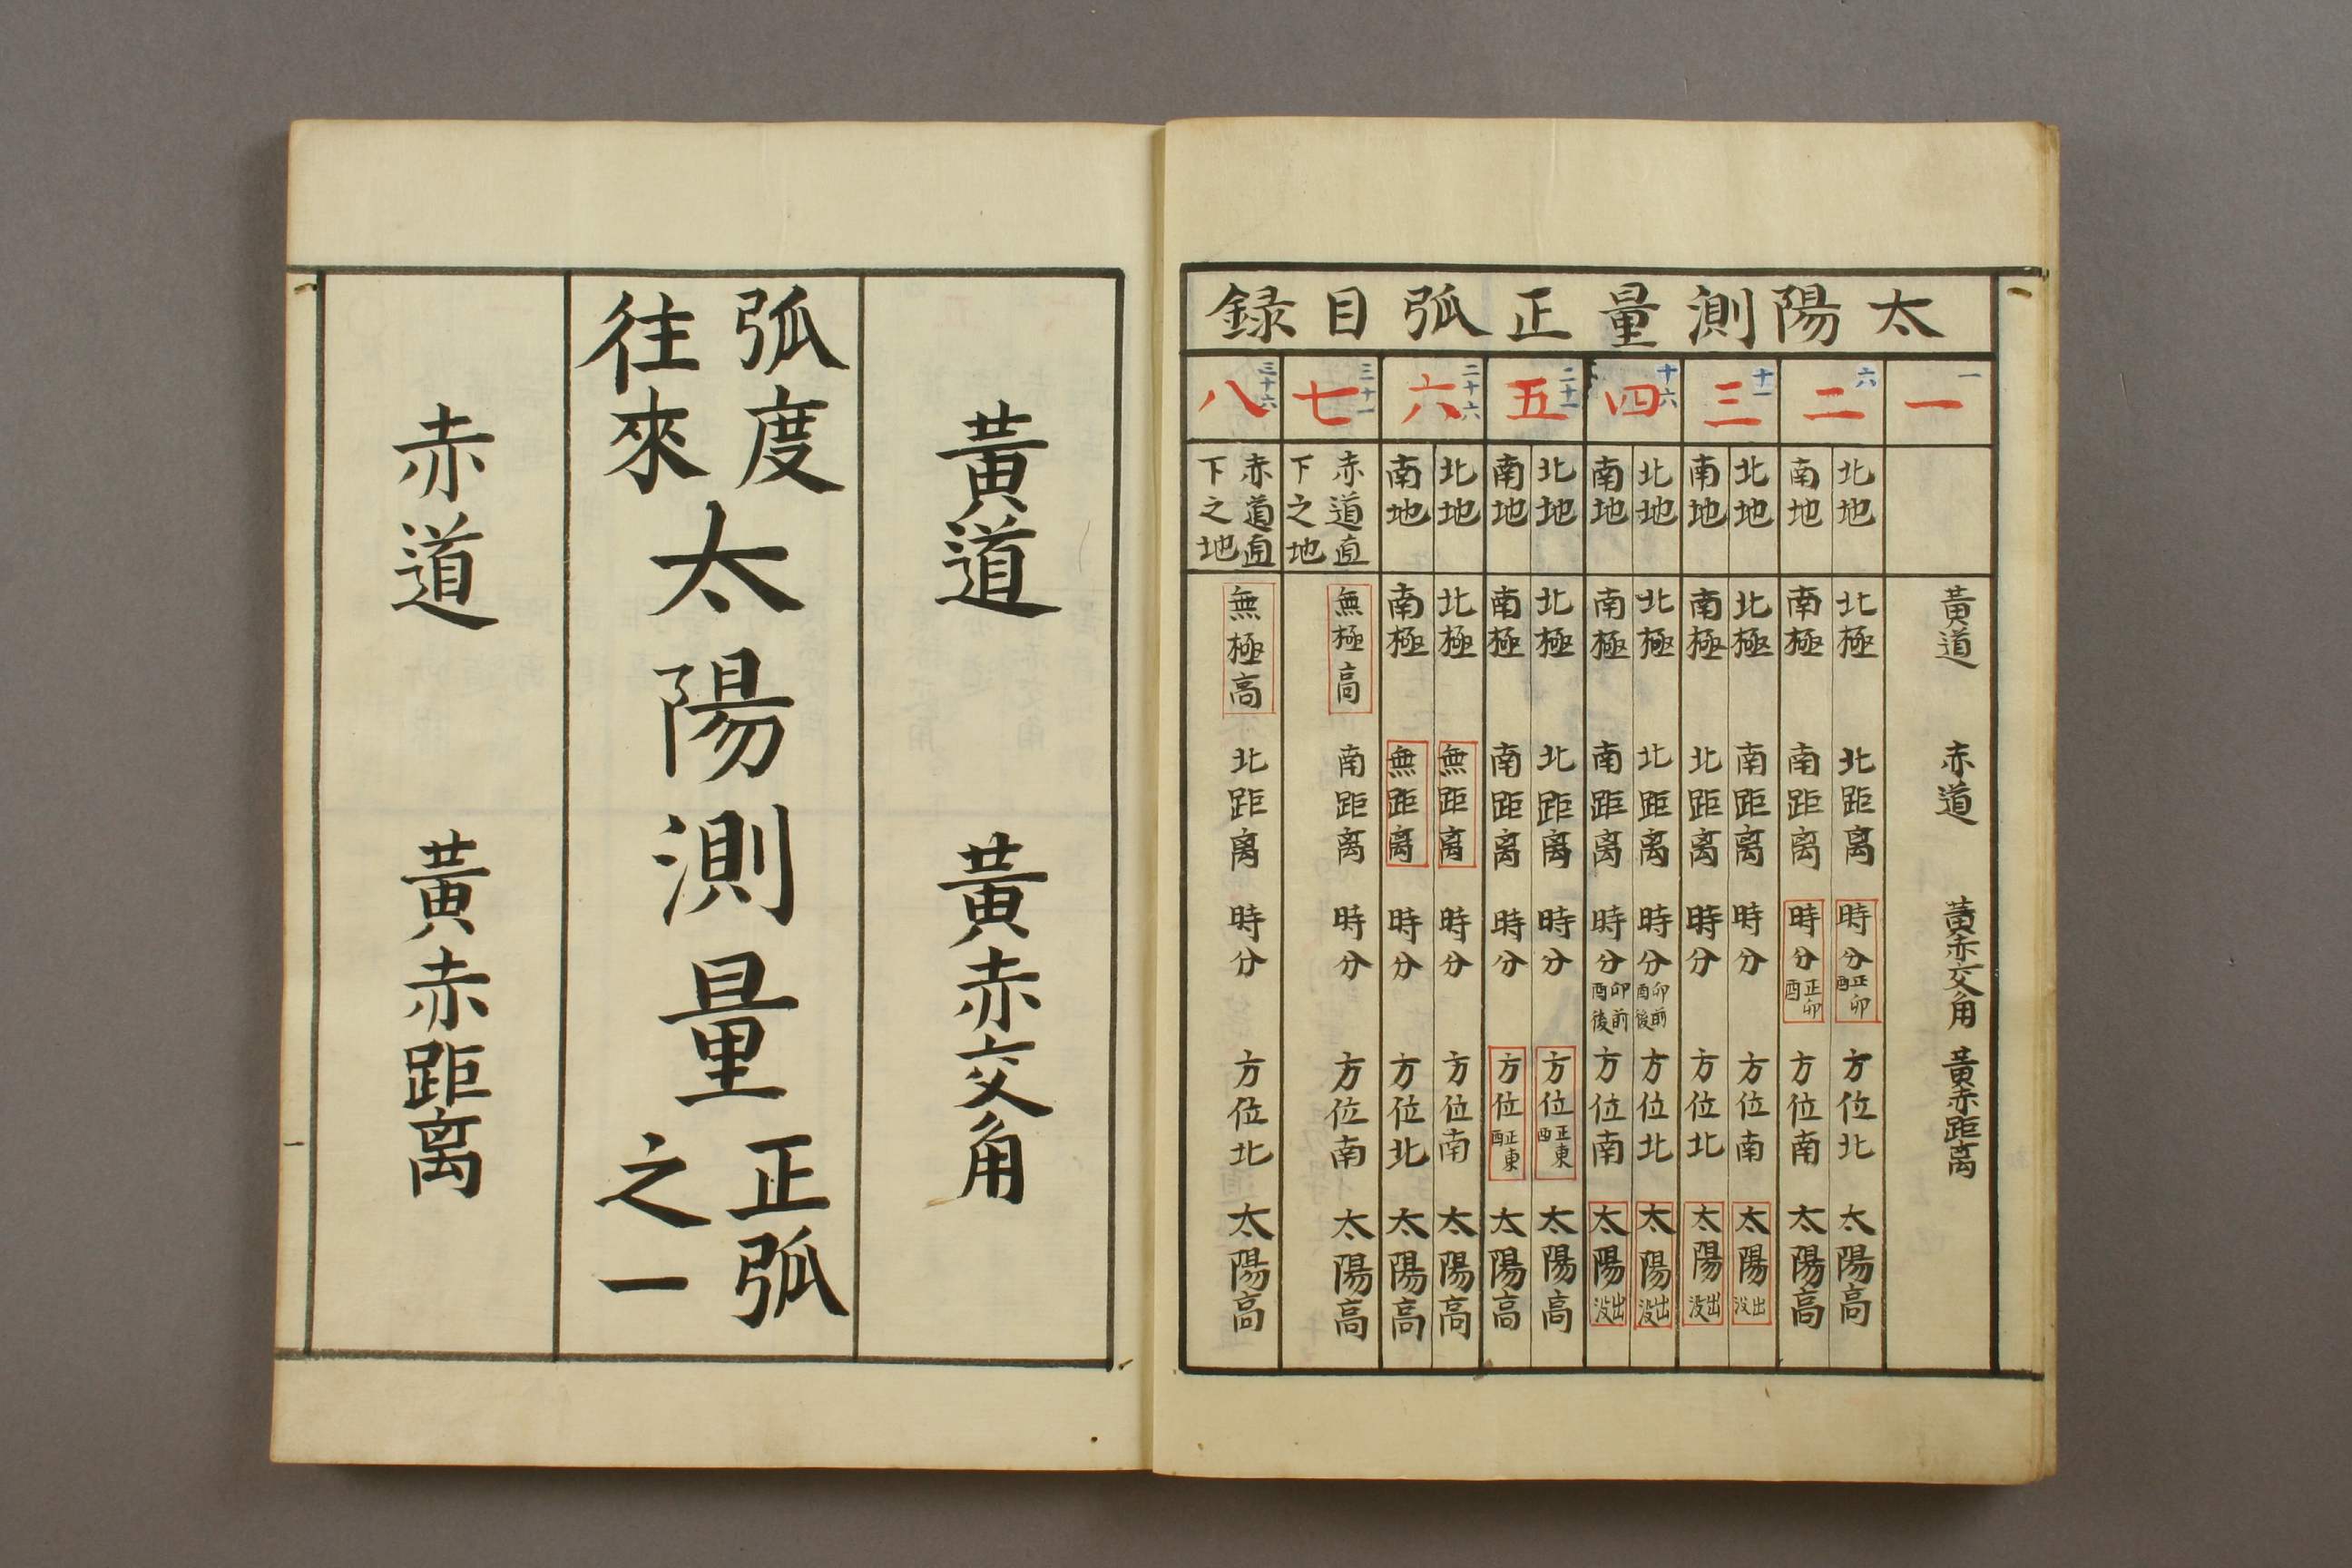 太陽測量正弧目録
一
一
黃道 赤道 黃赤交角 黃赤距离
六
二
北地 北極 北距离 時分正卯酉 方位北 太陽高
南地 南極 南距离 時分正卯酉 方位南 太陽高
十一
三
北地 北極 南距离 時分 方位南 太陽出没
南地 南極 北距离 時分 方位北 太陽出没
十六
四
北地 北極 北距离 時分卯前酉後 方位北 太陽出没
南地 南極 南距离 時分卯前酉後 方位南 太陽出没
二十一
五
北地 北極 北距离 時分 方位正東酉 太陽高
南地 南極 南距离 時分 方位正東酉 太陽高
二十六
六
北地 北極 無距离 時分 方位南 太陽高
南地 南極 無距离 時分 方位北 太陽高
三十一
七
赤道直下之地 無極高 南距离 時分 方位南 太陽高
三十六
八
赤道直下之地 無極高 北距离 時分 方位北 太陽高
黃道 黃赤交角
弧度往來 太陽測量 正弧之一
赤道 黃赤距离
一